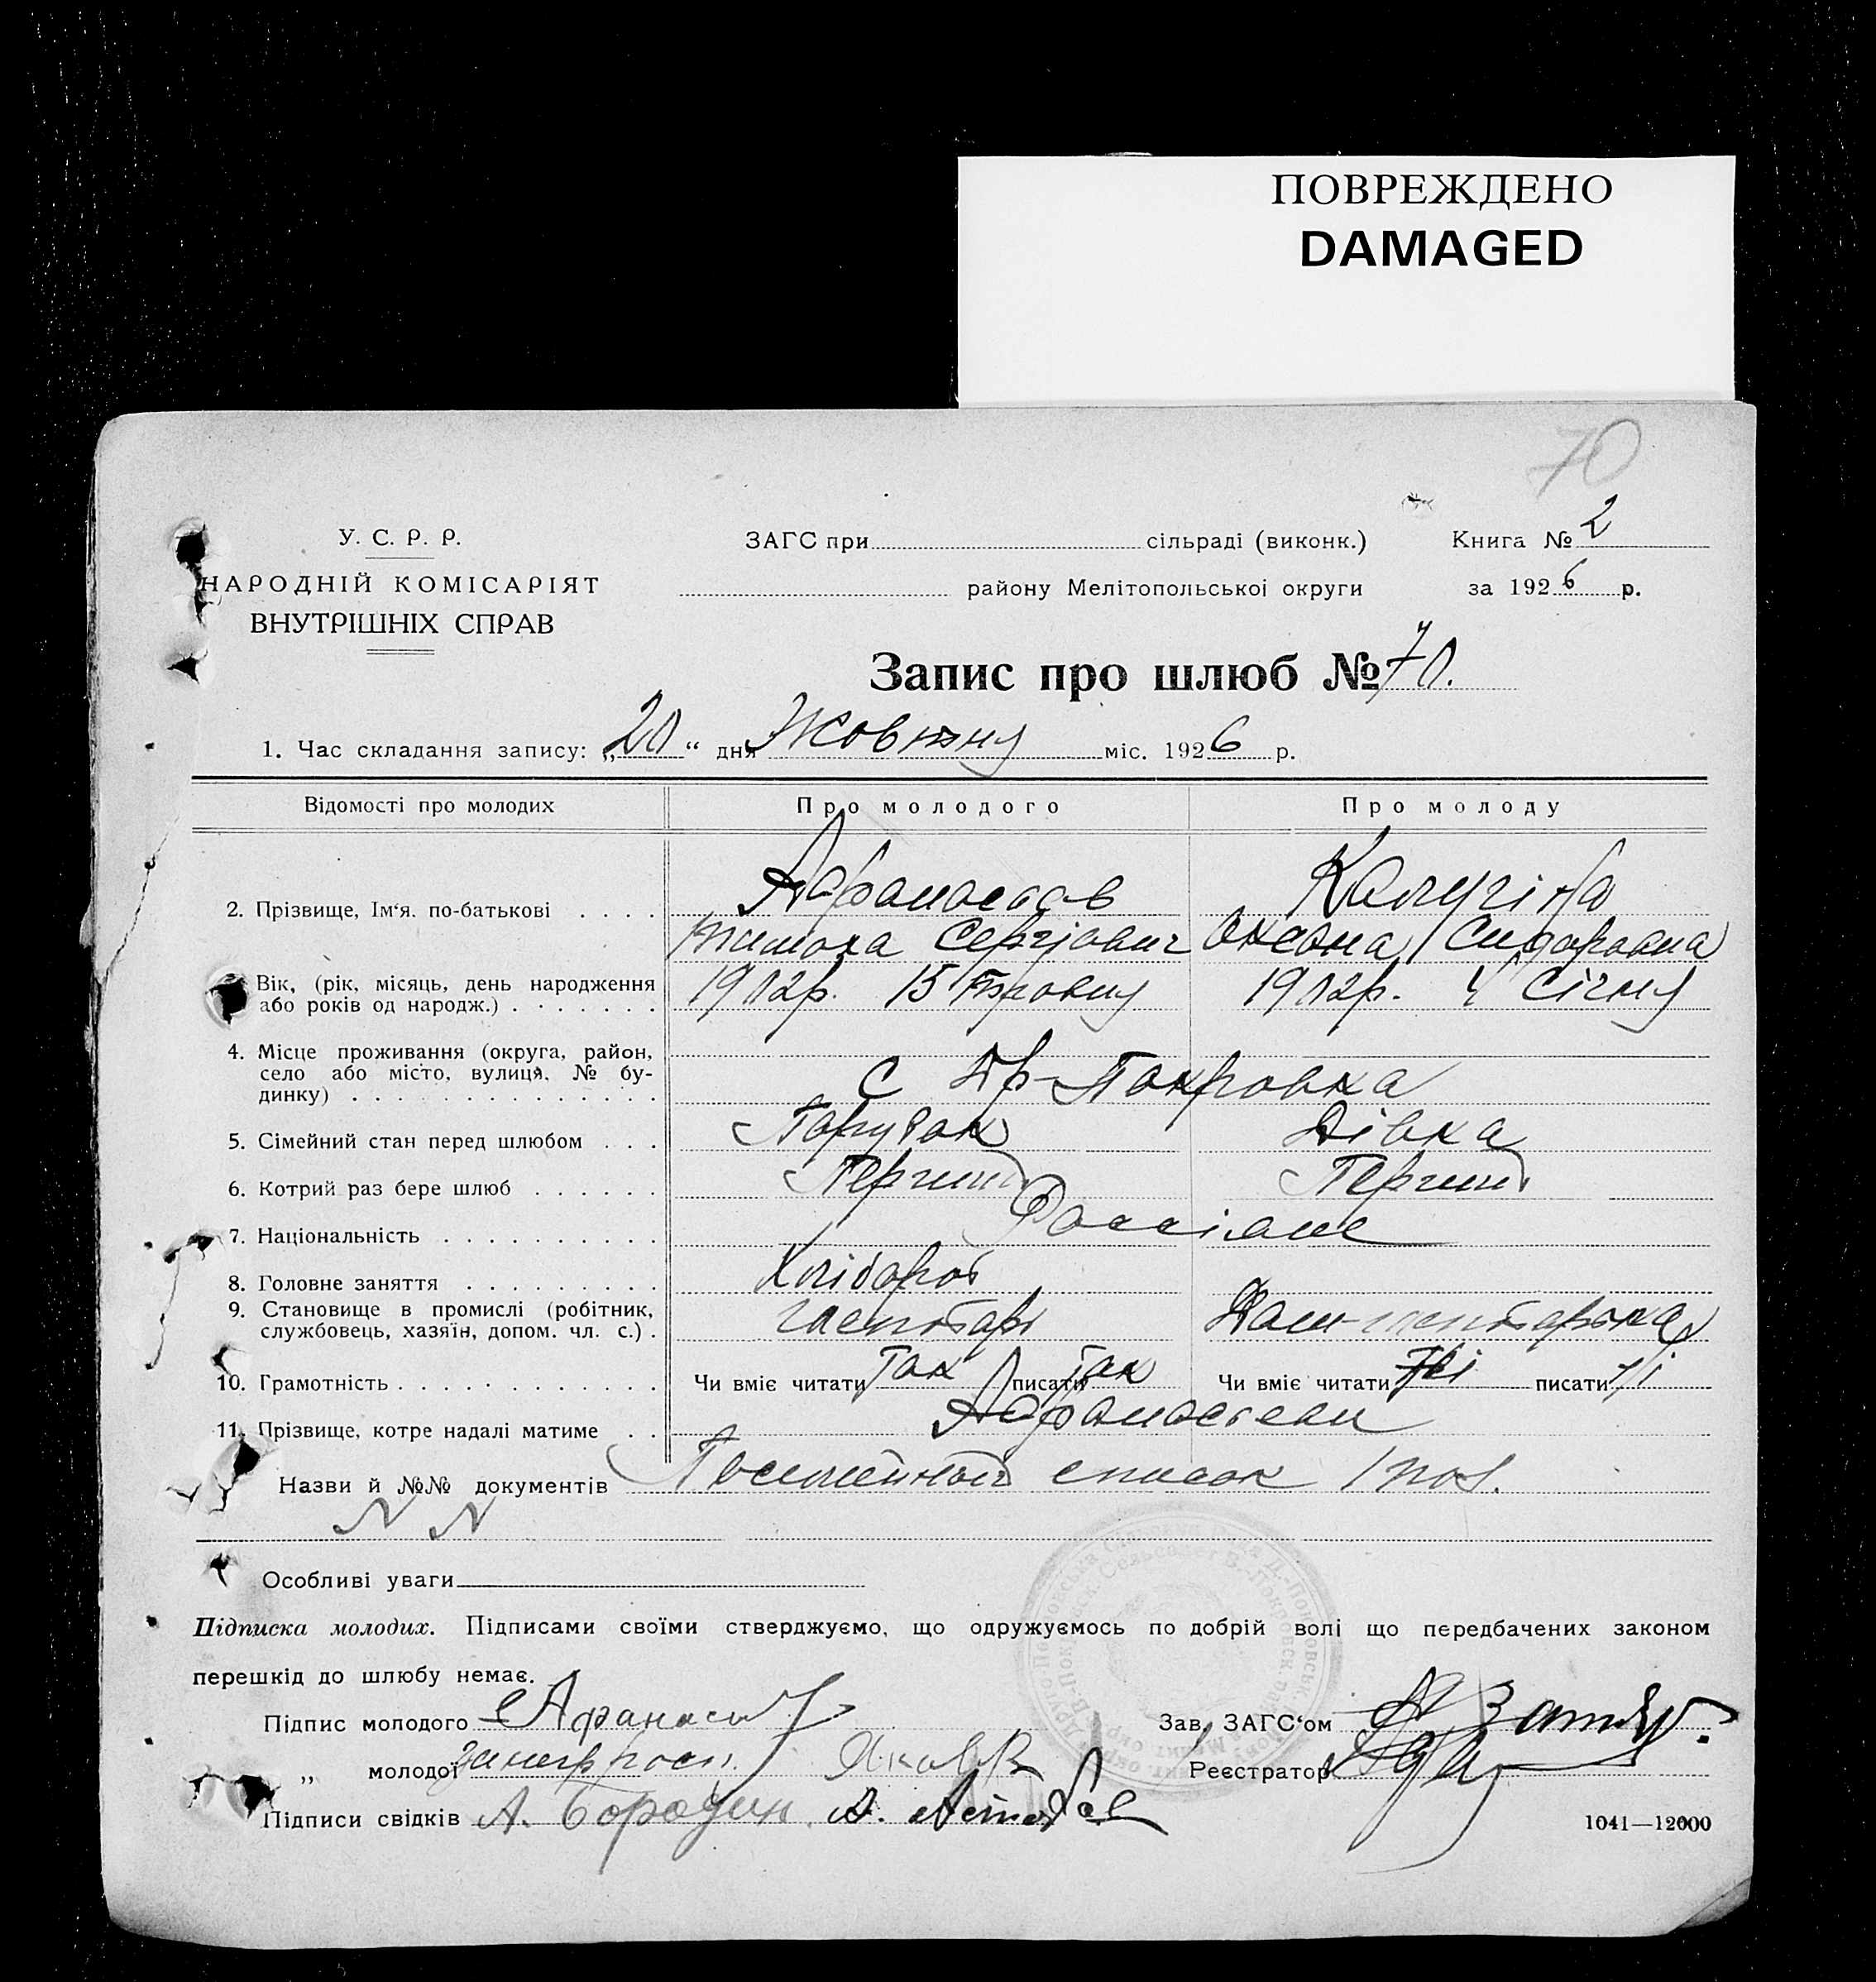 ПОВРЕЖДЕНО
DAMAGED
70
У. С. Р. Р.
НАРОДНІЙ КОМІСАРІЯТ
ВНУТРІШНІХ СПРАВ
ЗАГС при сільраді (виконк.)
району Мелітопольської округи
Книга № 2
за 1926 р.
Запис про шлюб № 70.
1. Час складання запису: „20“ дня Жовтня міс. 1926 р.
Відомості про молодих Про молодого Про молоду
2. Прізвище, Ім‘я, по-батькові Афанасьєв Калугіна
Тимоха Сергійович Оксана Сидоровна
3. Вік, (рік, місяць, день народження або років од народж.) 1902р. 15 Травня 1902р. 4 Січня
4. Місце проживання (округа, район, село або місто, вулиця, № будинку) с Др-Покровка
5. Сімейний стан перед шлюбом Парубок Дівка
6. Котрий раз бере шлюб Перший Перший
7. Національність Россіяне
8. Головне заняття Хлібороб
9. Становище в промислі (робітник, службовець, хазяїн, допом. чл. с.) Господарь Дом-господарька
10. Грамотність Чи вміє читати Так писати Так Чи вміє читати Ні писати Ні
11. Прізвище, котре надалі матиме Афанасьєви
Назви й №№ документів Посімейный список
N N
Особливі уваги
Підписка молодих. Підписами своїми стверджуємо, що одружуємось по добрій волі що передбачених законом
перешкід до шлюбу немає.
Підпис молодого Афанасьє
Зав. ЗАГС‘ом
„ молодої
Реєстратор
Підписи свідків А. Бородин
1041—12000